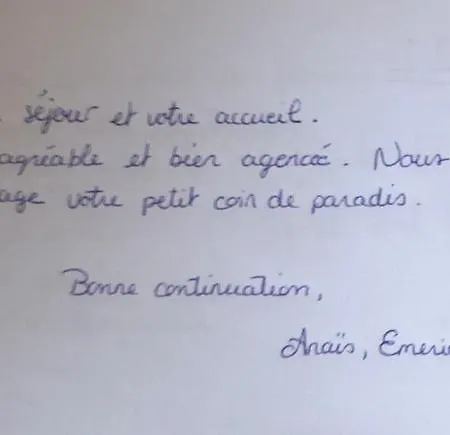 séjour et votre accueil.
agréable et bien agencé. Nous
age votre petit coin de paradis.
Bonne continuation,
Anaïs, Emeri